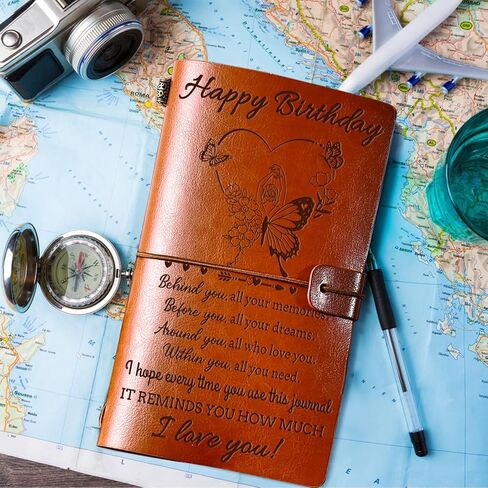 Happy Birthday
Behind you, all your memories.
Before you, all your dreams.
Around you, all who love you.
Within you, all you need.
I hope every time you use this journal
IT REMINDS YOU HOW MUCH
I love you!